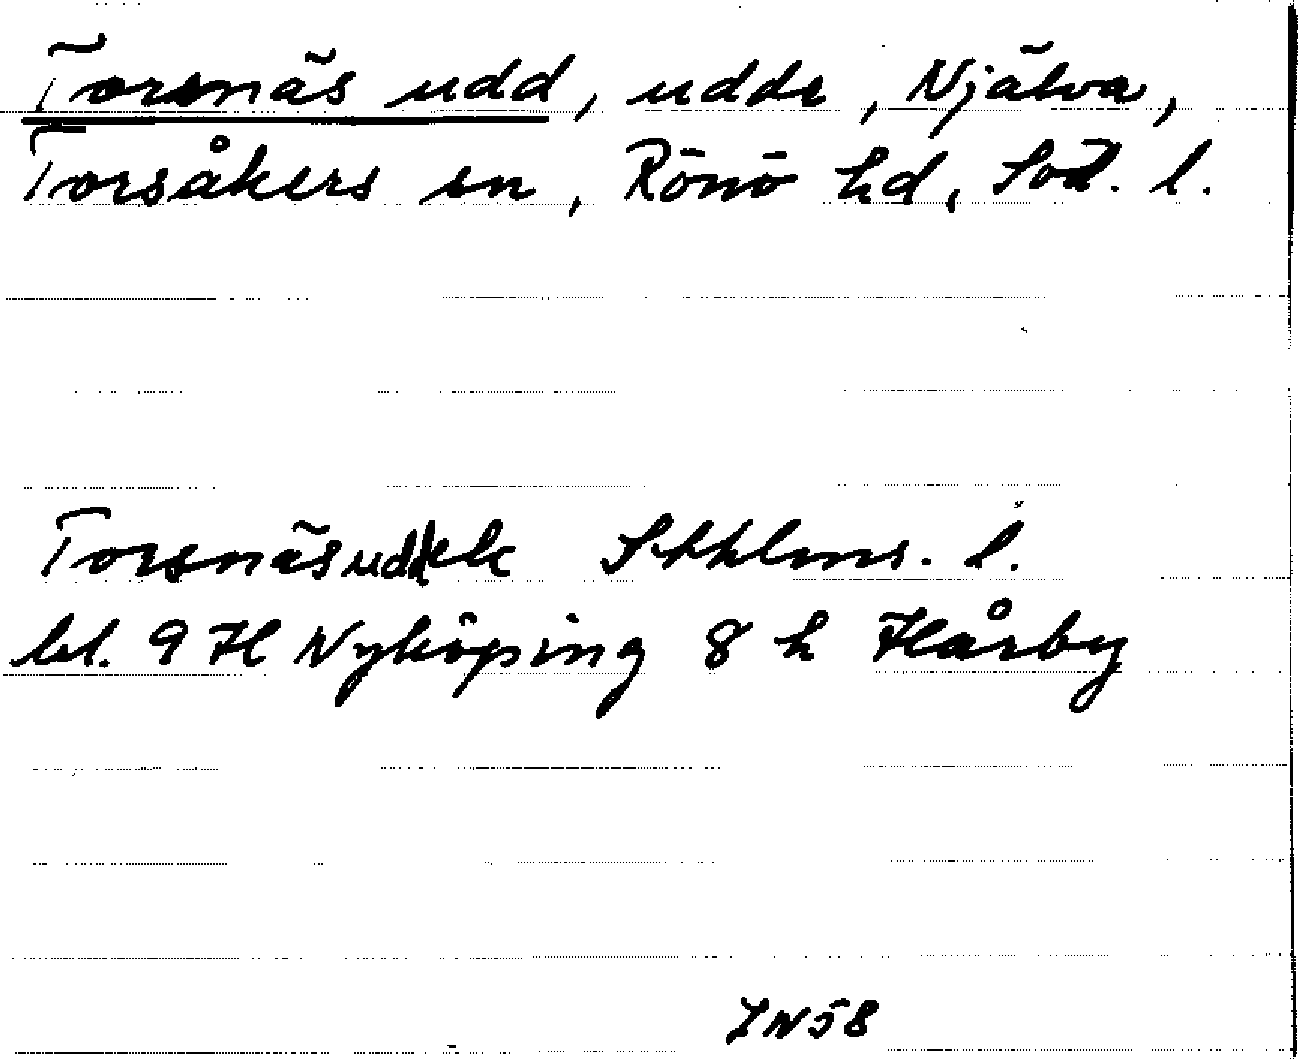 Torsnäs udd, udde, Njälva,
Torsåkers sn, Rönö hd, Söd. l.
Torsnäsudd ek Sthlms. l.
bl. 9 H Nyköping 8 h Hårby
IN58